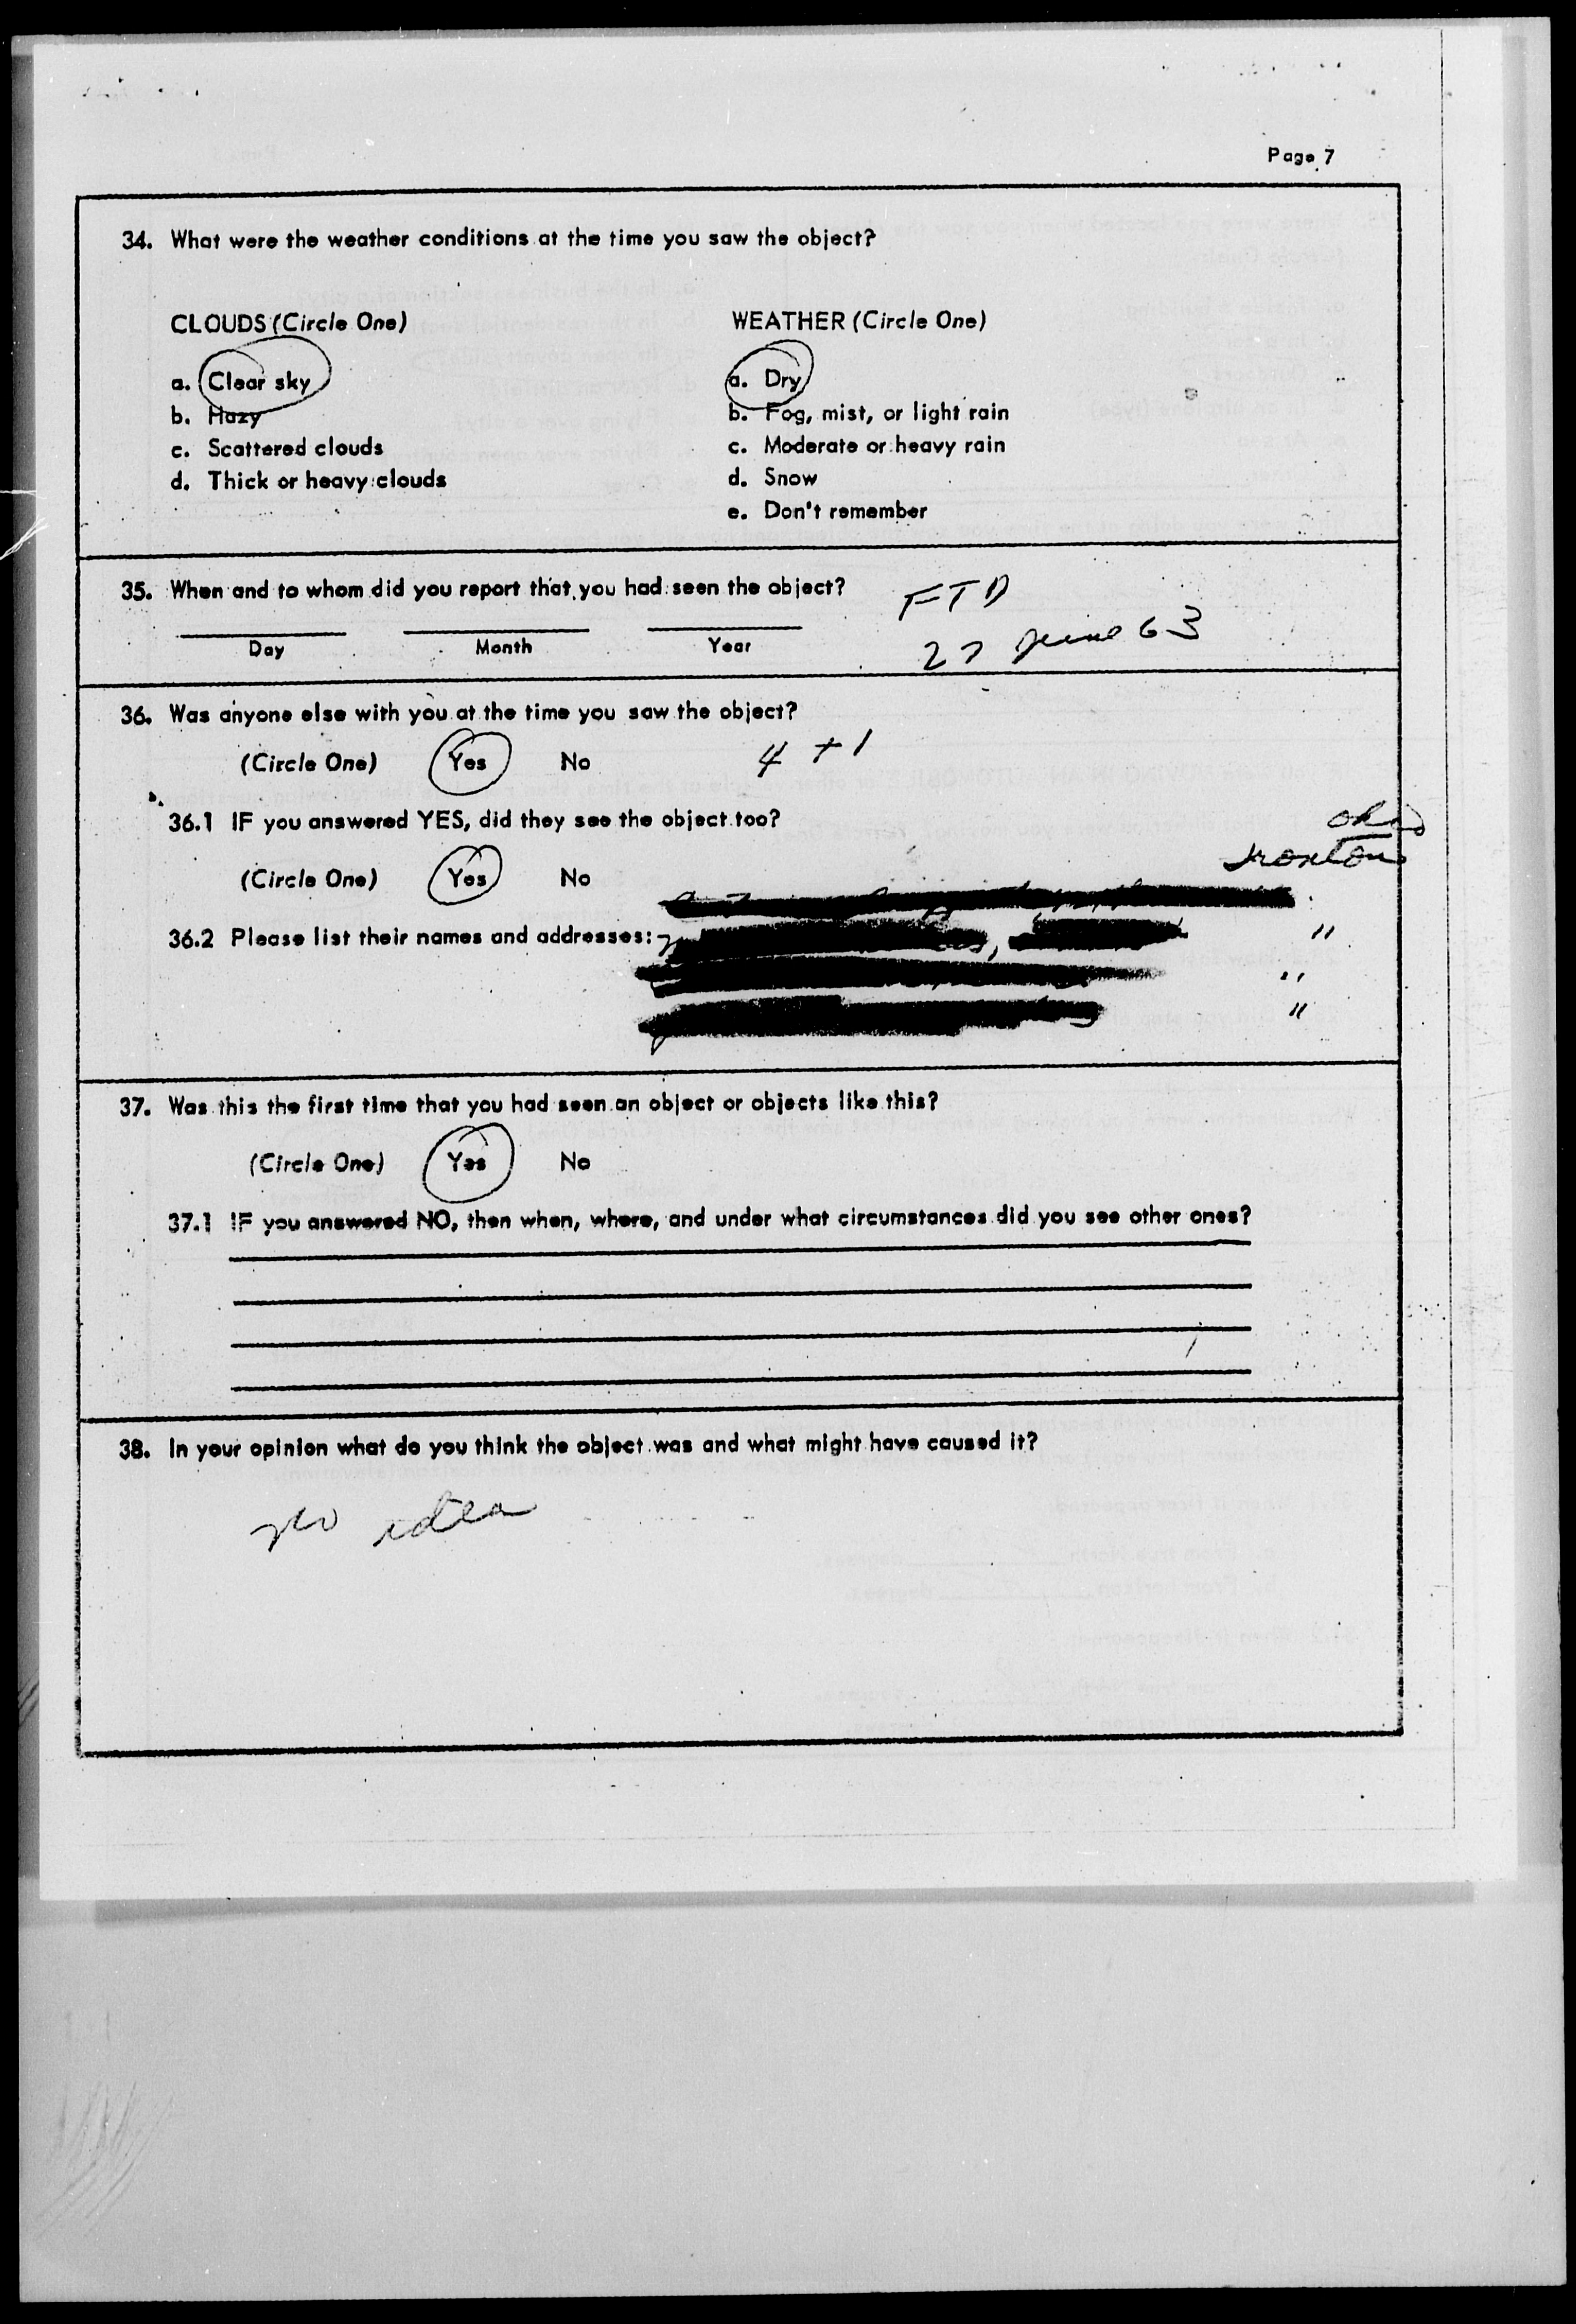 Page 7
34. What were the weather conditions at the time you saw the object?
CLOUDS (Circle One)
a. Clear sky
b. Hazy
c. Scattered clouds
d. Thick or heavy clouds
WEATHER (Circle One)
a. Dry
b. Fog, mist, or light rain
c. Moderate or heavy rain
d. Snow
e. Don't remember
35. When and to whom did you report that you had seen the object?
FTD
27 June 63
Day Month Year
36. Was anyone else with you at the time you saw the object?
(Circle One) Yes No 4 + 1
36.1 IF you answered YES, did they see the object too?
(Circle One) Yes No
Ironton
36.2 Please list their names and addresses:
"
"
"
37. Was this the first time that you had seen an object or objects like this?
(Circle One) Yes No
37.1 IF you answered NO, then when, where, and under what circumstances did you see other ones?
38. In your opinion what do you think the object was and what might have caused it?
no idea